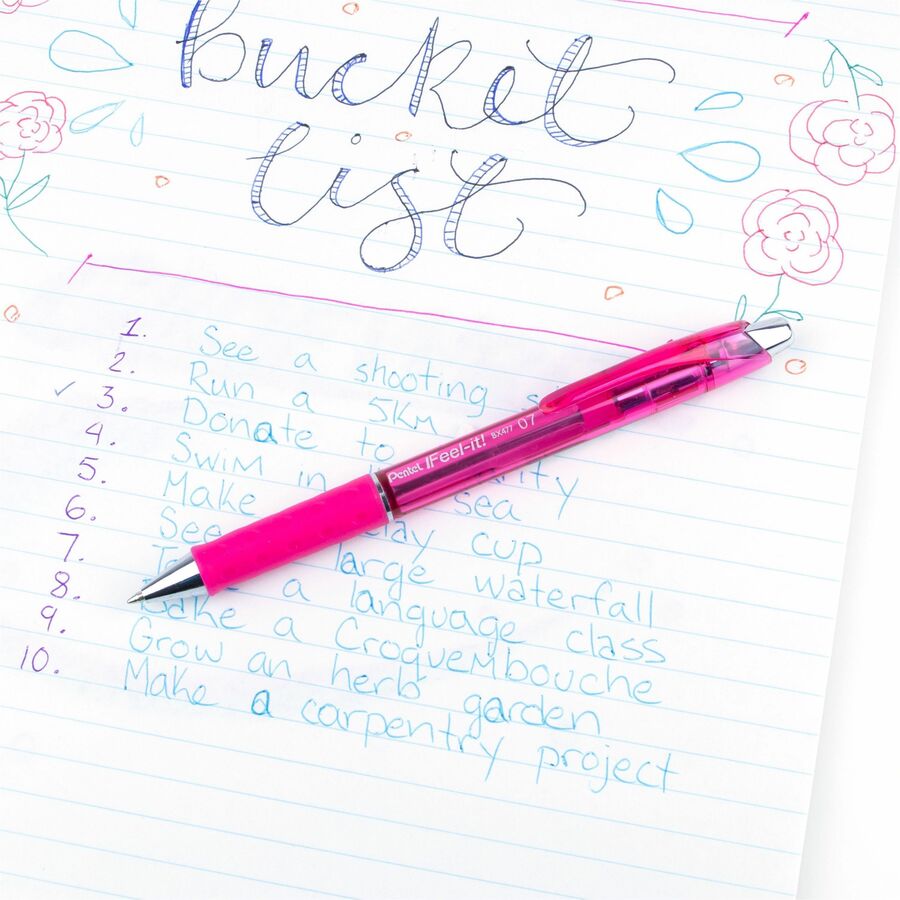 bucket
list
1. See a shooting
2. Run a 5Km
✓ 3. Donate to
4. Swim in sea
5. Make clay cup
6. See large waterfall
7. a language class
8. Bake a Croquembouche
9. Grow an herb garden
10. Make a carpentry project
Pentel IFeel-it! BX477 07